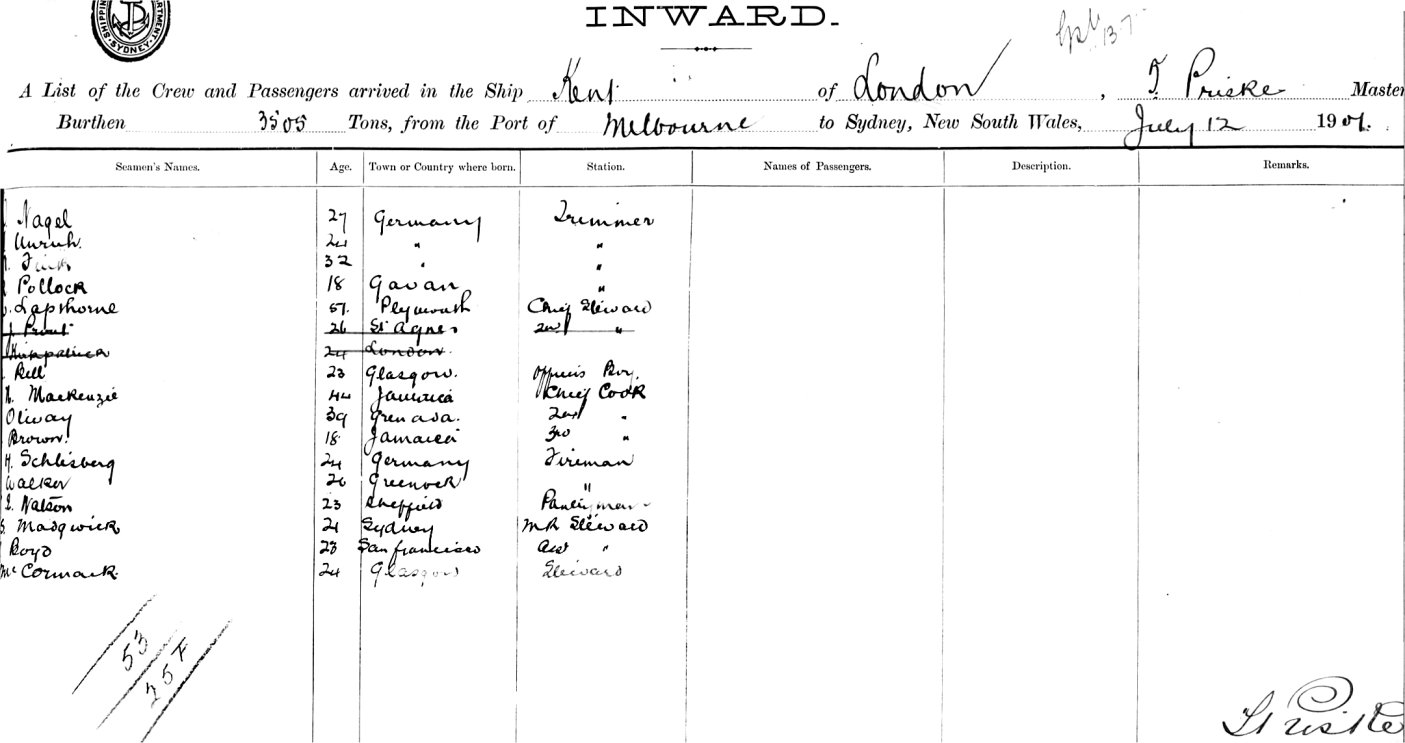 SHIPPING DEPARTMENT SYDNEY
INWARD.
13-7
A List of the Crew and Passengers arrived in the Ship Kent of London, T. Priske Master
Burthen 3505 Tons, from the Port of Melbourne to Sydney, New South Wales, July 12 1901.
Seamen's Names. Age. Town or Country where born. Station. Names of Passengers. Description. Remarks.
Nagel 27 Germany Trimmer
Unruh. 24 " "
32 " "
Pollock 18 Gavan "
Lapthorne 51. Plymouth Chief Steward
J. Prout 26 St Agnes 2nd "
Kirkpatrick 24 London.
Rell 23 Glasgow. Officers Boy.
Mackenzie 44 Jamaica Chief Cook
Oliway 39 Grenada. 2nd "
Brown. 18 Jamaica 3rd "
H. Schlisberg 24 Germany Fireman
Walker 26 Greenock "
Watson 23 Sheffield Pantryman
Madgwick 21 Sydney M.R. Steward
Boyd 23 San francisco Asst "
McCormack. 24 Glasgow Steward
53
25 F
T Priske